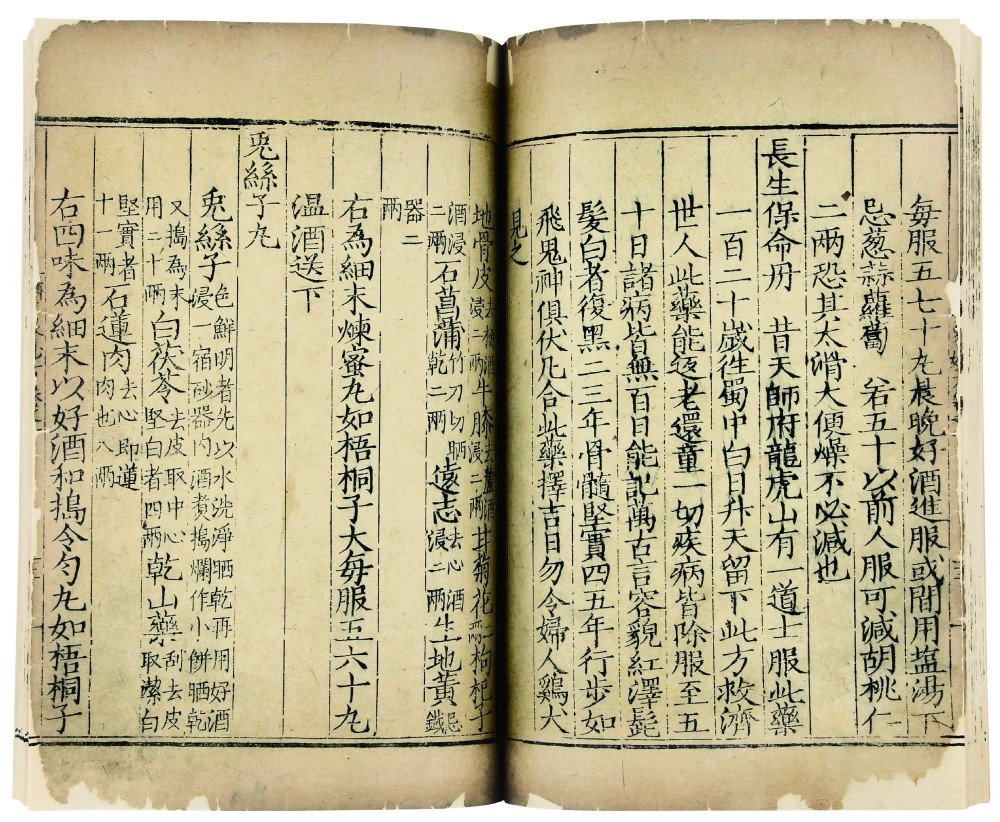 每服五七十丸晨晚好酒進服或間用塩湯下
忌葱蒜蘿蔔　若五十以前人服可減胡桃仁
二兩恐其太滑大便燥不必減也
長生保命丹　昔天師府龍虎山有一道士服此藥
一百二十歲徃蜀中白日升天留下此方救濟
世人此藥能返老還童一切疾病皆除服至五
十日諸病皆無百日能記萬古言容貌紅澤髭
髮白者復黑二三年骨髓堅實四五年行步如
飛鬼神俱伏凡合此藥擇吉日勿令婦人鷄犬
見之
地骨皮去梗酒浸二兩牛膝去蘆酒浸二兩甘菊花二兩枸杞子
酒浸二兩石菖蒲竹刀切晒乾二兩遠志去心酒浸二兩生地黃忌鐵
器二兩
右為細末煉蜜丸如梧桐子大每服五六十丸
温酒送下
兎絲子丸
兎絲子色鮮明者先以水洗淨晒乾再用好酒浸一宿砂器内酒煑搗爛作小餅晒乾
又搗為末用二十兩白茯苓去皮取中心堅白者四兩乾山藥刮去皮取潔白
堅實者十一兩石蓮肉去心即蓮肉也八兩
右四味為細末以好酒和搗令勻丸如梧桐子